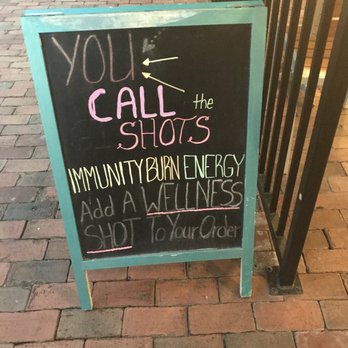 YOU
CALL the
SHOTS
IMMUNITY BURN ENERGY
Add A WELLNESS
SHOT To Your Order